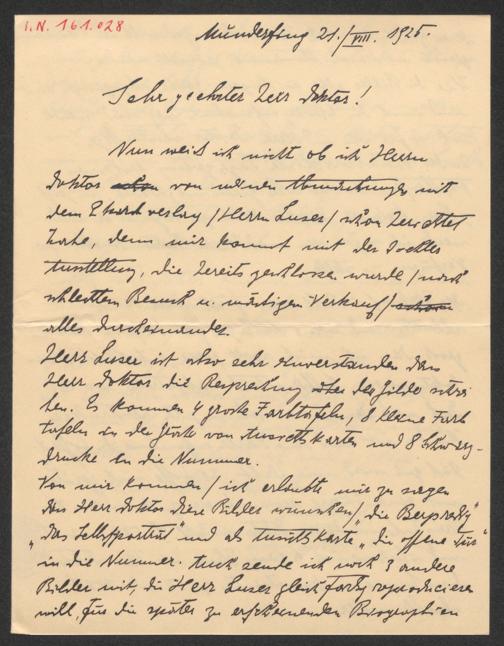 I.N. 161.028
Munderfing 21./VIII. 1925.
Sehr geehrter Herr Doktor!
Nun weiß ich nicht ob ich Herrn
Doktor schon von meinen Abmachungen mit
dem Eckart verlag /Herrn Luser/ schon berichtet
habe, denn mir kommt mit der
Ausstellung, die bereits geschlossen wurde /nach
schlechtem Besuch u. mäßigem Verkauf/ schon
alles durcheinander.
Herr Luser ist also sehr einverstanden dass
Herr Doktor die Besprechung über die Gilde schrei
ben. Es kommen 4 große Farbtafeln, 8 kleine Farb
tafeln in der Größe von Ansichtskarten und 8 Schwarz-
drucke in die Nummer.
Von mir kommen /ich erlaubte mir zu sagen
das Herr Doktor diese Bilder wünschten/ "die Bergpredigt"
"das Selbstporträt" und als Ansichtskarte "die offene Tür"
in die Nummer. Auch sende ich noch 3 andere
Bilder mit, die Herr Luser gleich farbig reproducieren
will, für die später zu erscheinenden Biographien